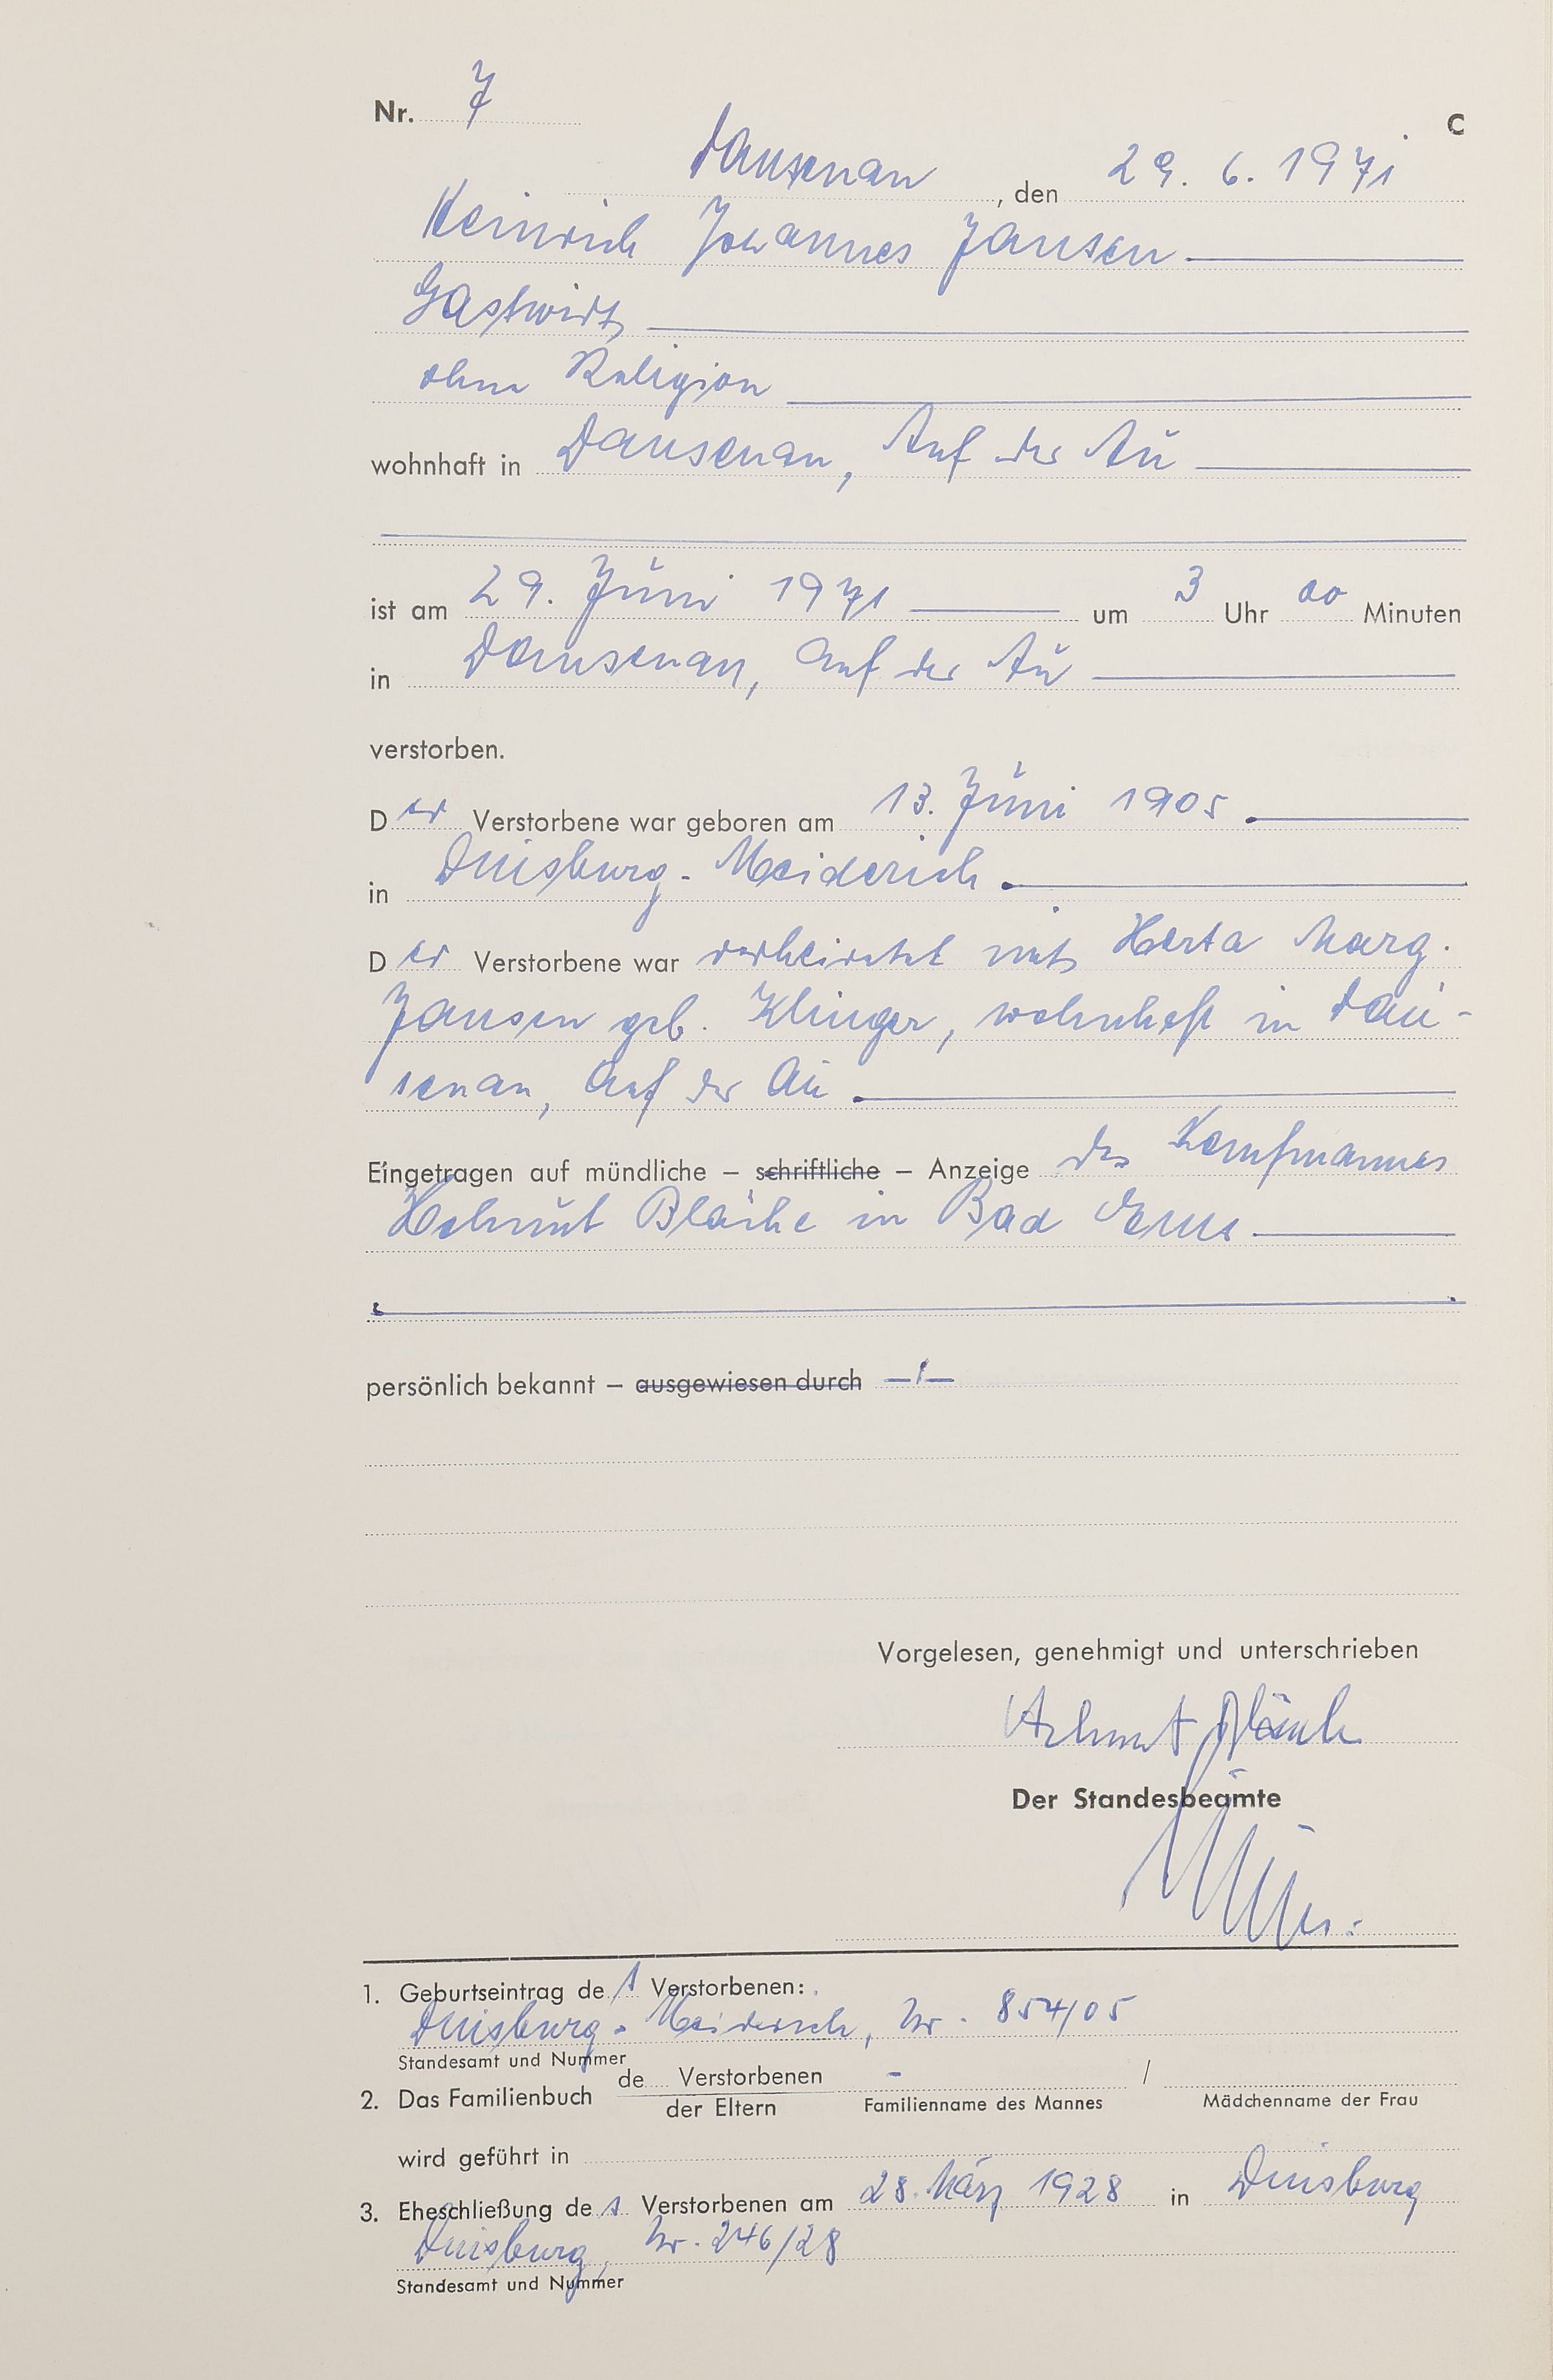 Nr. 7
C
Dausenau, den 29. 6. 1971
Heinrich Johannes Jansen
Gastwirt,
ohne Religion
wohnhaft in Dausenau, Auf der Au
ist am 29. Juni 1971 um 3 Uhr 00 Minuten
in Dausenau, Auf der Au
verstorben.
Der Verstorbene war geboren am 13. Juni 1905
in Duisburg-Meiderich
Der Verstorbene war verheiratet mit Herta Marg.
Jansen geb. Klinger, wohnhaft in Dau-
senau, Auf der Au
Eingetragen auf mündliche – schriftliche – Anzeige des Kaufmannes
Helmut Bläche in Bad Ems
persönlich bekannt – ausgewiesen durch –/–
Vorgelesen, genehmigt und unterschrieben
Helmut
Der Standesbeamte
1. Geburtseintrag des Verstorbenen:
Duisburg-Meiderich, Nr. 854/05
Standesamt und Nummer
2. Das Familienbuch de Verstorbenen – /
der Eltern Familienname des Mannes Mädchenname der Frau
wird geführt in
3. Eheschließung des Verstorbenen am 28. März 1928 in Duisburg
Duisburg, Nr. 246/28
Standesamt und Nummer